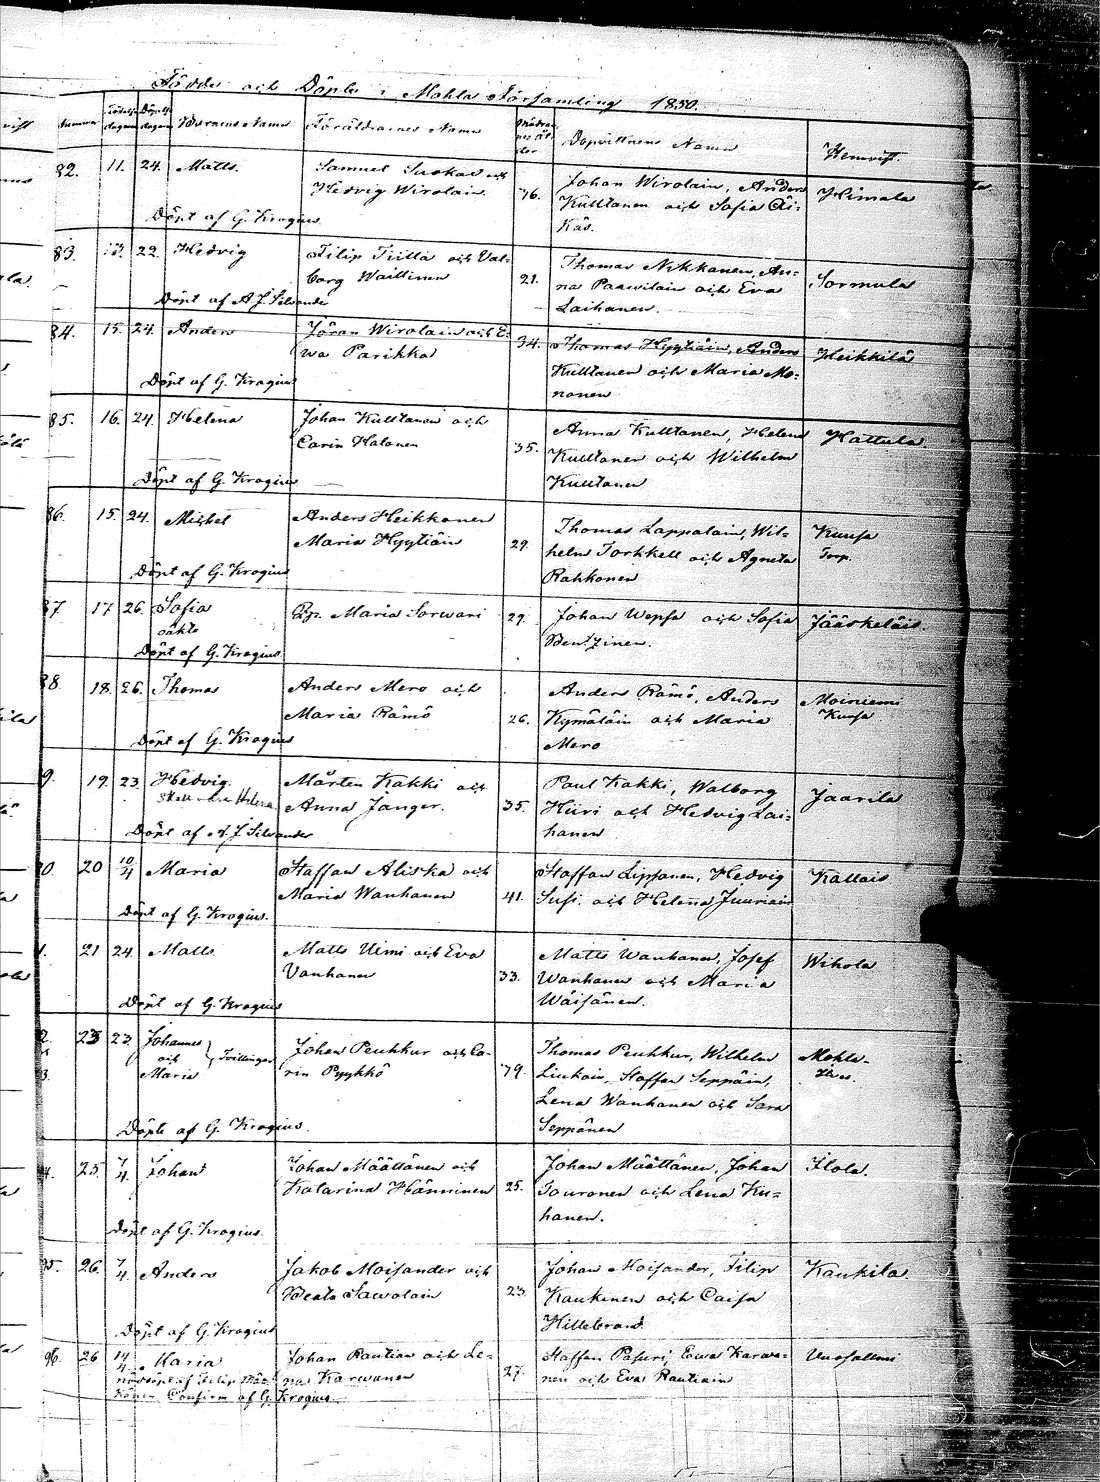 Födde och Döpte i Mohla Församling 1850.
Nummer Födelse dagen Döpelse dagen Barnens Namn Föräldrarnes Namn Mödrarnes ålder Dopvittnens Namn Hemvist.
82. 11. 24. Matts. Samuel Suskas och 76. Johan Wirolain, Anders Himala
Hedvig Wirolain Kulttanen och Sofia Äi-
Döpt af G. Krogius käs.
83. 13. 22. Hedvig Filip Tiilla och Val- 21. Thomas Nykkanen, An- Sormula
borg Waittinen na Paawilain och Eva
Döpt af A. J. Silvander Laihanen.
84. 15. 24. Anders Jöran Wirolain och E- 34. Thomas Hyytiäin, Anders Heikkilä
wa Parikka Kulttanen och Maria Mo-
Döpt af G. Krogius nonen
85. 16. 24. Helena Johan Kulttanen och 35. Anna Kulttanen, Helena Hattula
Carin Halonen Kulttanen och Wilhelm
Döpt af G. Krogius Kulttanen
86. 15. 24. Michel Anders Heikkonen 29. Thomas Lappalain, Wil- Kuusa
Maria Hyytiäin helm Torkkell och Agneta Torp.
Döpt af G. Krogius Rahkonen
87. 17. 26. Sofia Pig. Maria Sorwari 29. Johan Wepsä och Sofia Jääskeläis.
oäkta Bentzinen.
Döpt af G. Krogius
88. 18. 26. Thomas Anders Mero och 26. Anders Rämö, Anders Moiniemi
Maria Rämö Kymäläin och Maria Kunsa
Döpt af G. Krogius Mero
9. 19. 23. Hedvig. Mårten Kakki och 35. Paul Kakki, Walborg Jaarila
Skall vara Helena Anna Janger. Hiiri och Hedvig Lai-
Döpt af A. J. Silvander hanen
0. 20 10/4 Maria Staffan Aliska och 41. Staffan Lippanen, Hedvig Kallais
Maria Wanhanen Susi och Helena Juuriain
Döpt af G. Krogius.
1. 21 24. Matts. Matts Uimi och Eva 33. Matts Wanhanen, Josef Wihola
Vanhanen Wanhanen och Maria
Döpt af G. Krogius Wäisänen.
2. 23 23. Johannes Johan Peuhkur och Ca- 79. Thomas Peuhkur, Wilhelm Mohla-
och Tvillingar rin Pyykkö Liukoin, Staffan Seppäin,
3. Maria Lena Wanhanen och Sara
Döpte af G. Krogius. Seppänen
4. 25. 7/4. Johan Johan Määttänen och 25. Johan Määttänen, Johan Ilola.
Katarina Hänninen Touronen och Lena Ku-
Döpt af G. Krogius. hanen.
95. 26. 7/4. Anders Jakob Moisander och 23. Johan Moisander, Filip Kaukila
Beata Sawolain Kaukinen och Caisa
Döpt af G. Krogius Hillebrand.
96. 26 14/4. Maria Johan Rautiain och Le- 27. Staffan Pasuri, Ewa Karwa- Vuosalmi
nöddöpt af Filip na Karwanen nen och Eva Rautiain
Confirm. af G. Krogius